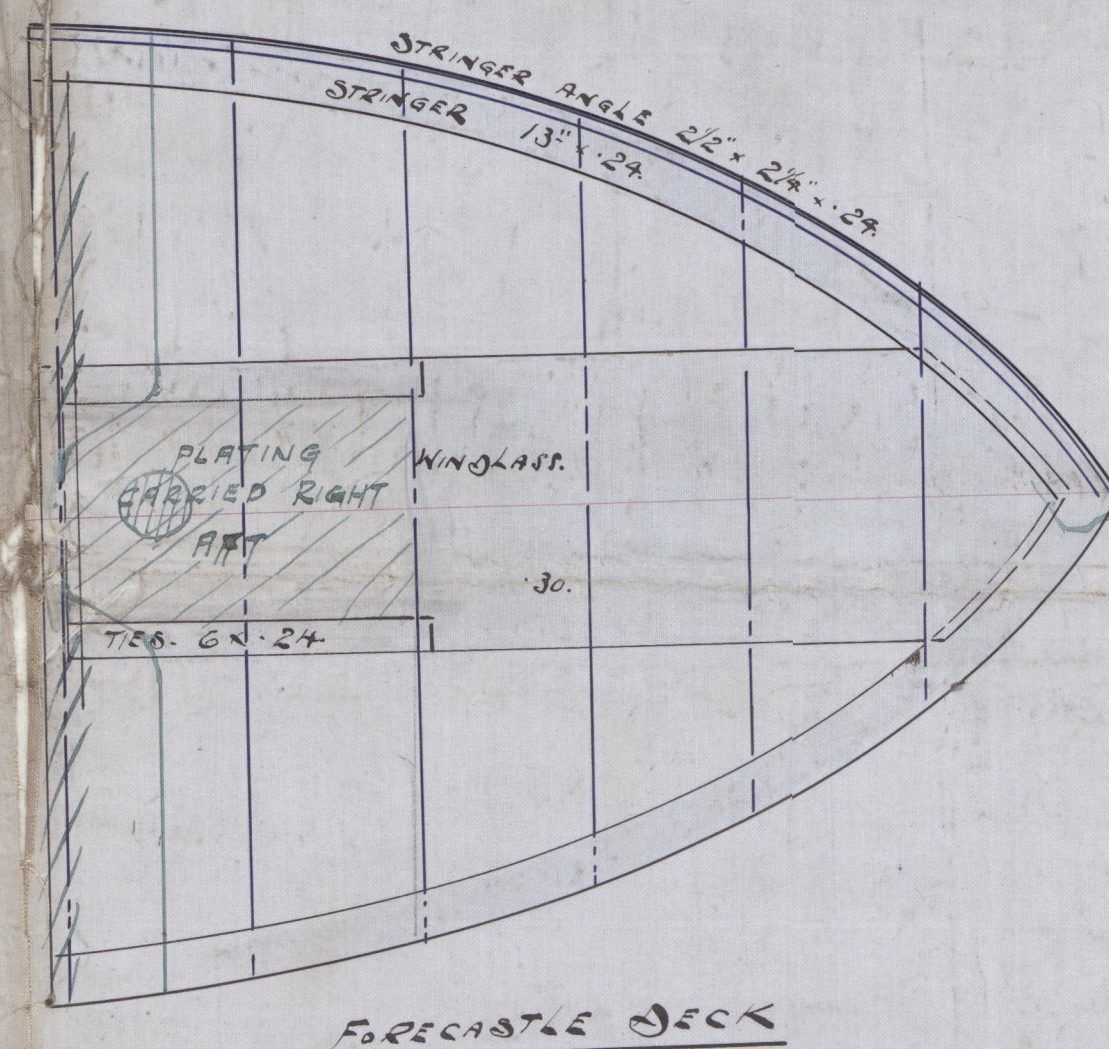 STRINGER ANGLE 2½" x 2¼" x ·24.
STRINGER 13" x ·24.
PLATING
CARRIED RIGHT
AFT
WINDLASS.
·30.
TIES. 6 x ·24
FORECASTLE DECK